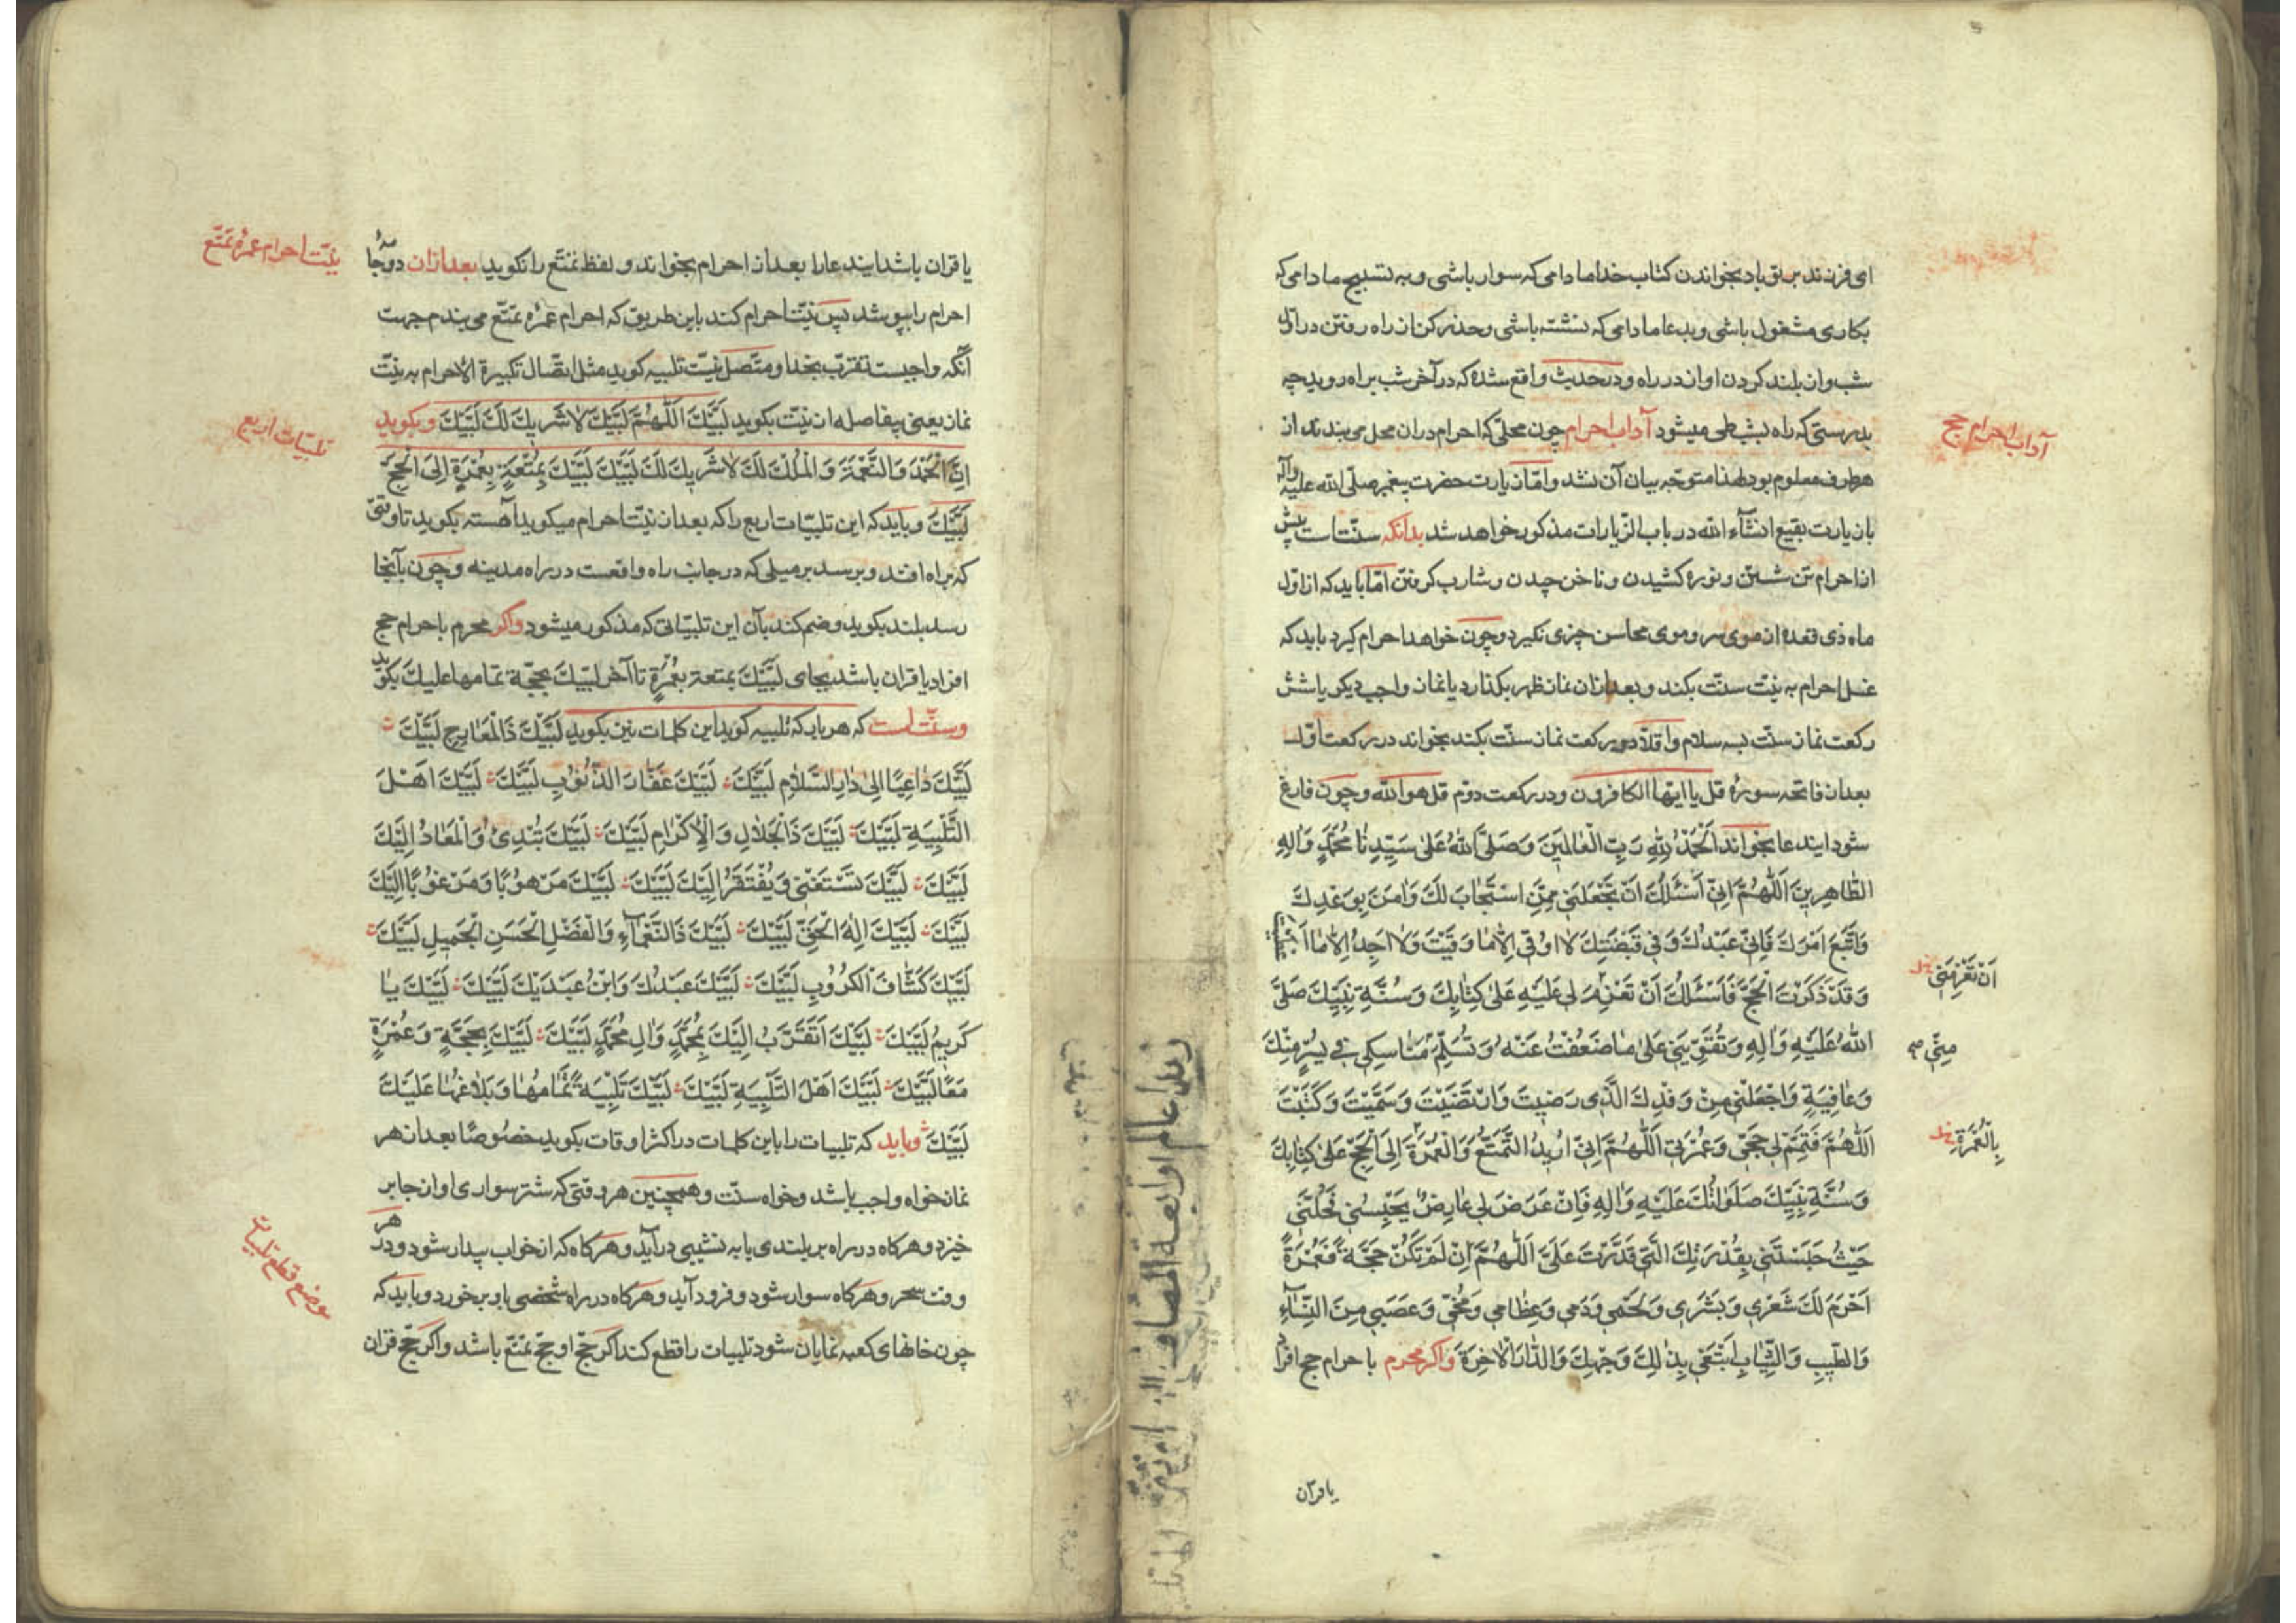 ای فرزند بر تو باد بخواندن کتاب خدا مادامی که سوار باشی و به تسبیح مادامی که
بکاری مشغول باشی و بدعا مادامی که نشسته باشی و حذر کن از راه رفتن در اول
شب و از بلند کردن اواز در راه و در حدیث واقع شده که در آخر شب براه روید چه
بدرستی که راه بشب طی میشود آداب احرام چون محلّی که احرام دران محل می بندند از
هر طرف معلوم بود لهذا متوجّه بیان آن نشد و امّا زیارت حضرت پیغمبر صلّی الله علیه وآله
با زیارت بقیع انشآء الله در باب الزّیارات مذکور خواهد شد بدانکه سنّت است پیش
از احرام تن شستن و نوره کشیدن و ناخن چیدن و شارب کرفتن امّا باید که از اوّل
ماه ذی قعده از موی سر و موی محاسن چیزی نکیرد و چون خواهد احرام کیرد باید که
غسل احرام به نیّت سنّت بکند و بعد ازان نماز ظهر بکذارد یا نماز واجب دیکر یا شش
رکعت نماز سنّت بسه سلام و اقلّا دو رکعت نماز سنّت بکند بخواند در رکعت اوّل
بعد از فاتحه سورهٔ قل یا ایها الکافرون و در رکعت دوّم قل هو الله و چون فارغ
شود ایندعا بخواند اَلْحَمْدُ لِلّٰهِ رَبِّ الْعٰالَمِینَ وَصَلَّی اللهُ عَلیٰ سَیِّدِنٰا مُحَمَّدٍ وَاٰلِهِ
الطّٰاهِرِینَ اَللّٰهُمَّ اِنّی اَسْئَلُكَ اَنْ تَجْعَلَنی مِمَّنِ اسْتَجٰابَ لَكَ وَاٰمَنَ بِوَعْدِكَ
وَاتَّبَعَ اَمْرَكَ فَاِنّی عَبْدُكَ وَفی قَبْضَتِكَ لا اُوقیٰ اِلّٰا مٰا وَقَیْتَ وَلا اَجِدُ اِلّٰا مٰا اَعْطَیْتَ
وَقَدْ ذَکَرْتَ الْحَجَّ فَاَسْئَلُكَ اَنْ تَعْزِمَ لی عَلَیْهِ عَلیٰ کِتٰابِكَ وَسُنَّةِ نَبِیِّكَ صَلَّی
اَنْ تَعْزِمَنی خل
اللهُ عَلَیْهِ وَاٰلِهِ وَتُقَوِّیَنی عَلیٰ مٰا ضَعُفْتُ عَنْهُ وَتُسَلِّمَ مَنٰاسِکی فی یُسْرٍ مِنْكَ
مِنّی
وَعٰافِیَةٍ وَاجْعَلْنی مِنْ وَفْدِكَ الَّذی رَضِیتَ وَارْتَضَیْتَ وَسَمَّیْتَ وَکَتَبْتَ
اَللّٰهُمَّ فَتَمِّمْ لی حَجّی وَعُمْرَتی اَللّٰهُمَّ اِنّی اُریدُ التَّمَتُّعَ وَالْعُمْرَةَ اِلَی الْحَجِّ عَلیٰ کِتٰابِكَ
بِالْعُمْرَةِ خل
وَسُنَّةِ نَبِیِّكَ صَلَوٰاتُكَ عَلَیْهِ وَاٰلِهِ فَاِنْ عَرَضَ لی عٰارِضٌ یَحْبِسُنی فَحُلَّنی
حَیْثُ حَبَسْتَنی بِقُدْرَتِكَ الَّتی قَدَّرْتَ عَلَیَّ اَللّٰهُمَّ اِنْ لَمْ تَکُنْ حَجَّةً فَعُمْرَةً
اَحْرَمَ لَكَ شَعْری وَبَشَری وَلَحْمی وَدَمی وَعِظٰامی وَمُخّی وَعَصَبی مِنَ النِّسٰآءِ
وَالطّیبِ وَالثِّیٰابِ اَبْتَغی بِذٰلِكَ وَجْهَكَ وَالدّٰارَ الْاٰخِرَةَ و اکر محرم با حرام حج افراد
آداب احرام حج
یا قرآن
یا قران باشد ایندعا را بعد از احرام بخواند و لفظ تمتّع را نکوید بعد ازان دو جامهٔ
نیّت احرام عمرهٔ تمتّع
احرام را بپوشد پس نیّت احرام کند باین طریق که احرام عمرهٔ تمتّع می بندم جهت
آنکه واجبست تقرّب بخدا و متّصل نیّت تلبیه کوید مثل اتّصال تکبیرة الاحرام به نیّت
نماز یعنی بیفاصله از نیّت بکوید لَبَّیْكَ اَللّٰهُمَّ لَبَّیْكَ لاٰ شَریكَ لَكَ لَبَّیْكَ و بکوید
تلبیّات اربع
اِنَّ الْحَمْدَ وَالنِّعْمَةَ وَالْمُلْكَ لَكَ لاٰ شَریكَ لَكَ لَبَّیْكَ لَبَّیْكَ بِمُتْعَةٍ بِعُمْرَةٍ اِلَی الْحَجِّ
لَبَّیْكَ و باید که این تلبیّات اربع را که بعد از نیّت احرام میکوید آهسته بکوید تا وقتی
که براه افتد و برسد بر میلی که در جانب راه واقعست در راه مدینه و چون بآنجا
رسد بلند بکوید و ضم کند بآن این تلبیّاتی که مذکور میشود و اکر محرم با حرام حج
افراد یا قران باشد بجای لَبَّیْكَ بمتعة بِعُمْرَةٍ تا آخر لبّیك بحجّة تمامها علیك بکوید
و سنّت است که هر بار که تلبیه کوید این کلمات نیز بکوید لَبَّیْكَ ذَا الْمَعٰارِجِ لَبَّیْكَ
لَبَّیْكَ دٰاعِیًا اِلیٰ دٰارِ السَّلاٰمِ لَبَّیْكَ لَبَّیْكَ غَفّٰارَ الذُّنُوبِ لَبَّیْكَ لَبَّیْكَ اَهْلَ
التَّلْبِیَةِ لَبَّیْكَ لَبَّیْكَ ذَا الْجَلاٰلِ وَالْاِکْرٰامِ لَبَّیْكَ لَبَّیْكَ تُبْدِئُ وَالْمَعٰادُ اِلَیْكَ
لَبَّیْكَ لَبَّیْكَ تَسْتَغْنی وَیُفْتَقَرُ اِلَیْكَ لَبَّیْكَ لَبَّیْكَ مَرْهُوبًا وَمَرْغُوبًا اِلَیْكَ
لَبَّیْكَ لَبَّیْكَ اِلٰهَ الْحَقِّ لَبَّیْكَ لَبَّیْكَ ذَا النَّعْمٰآءِ وَالْفَضْلِ الْحَسَنِ الْجَمیلِ لَبَّیْكَ
لَبَّیْكَ کَشّٰافَ الْکُرُوبِ لَبَّیْكَ لَبَّیْكَ عَبْدُكَ وَابْنُ عَبْدَیْكَ لَبَّیْكَ لَبَّیْكَ یٰا
کَریمُ لَبَّیْكَ لَبَّیْكَ اَتَقَرَّبُ اِلَیْكَ بِمُحَمَّدٍ وَاٰلِ مُحَمَّدٍ لَبَّیْكَ لَبَّیْكَ بِحَجَّةٍ وَعُمْرَةٍ
مَعًا لَبَّیْكَ لَبَّیْكَ اَهْلَ التَّلْبِیَةِ لَبَّیْكَ لَبَّیْكَ تَلْبِیَةً تَمٰامُهٰا وَبَلاٰغُهٰا عَلَیْكَ
لَبَّیْكَ و باید که تلبیات را باین کلمات در اکثر اوقات بکوید خصوصًا بعد از هر
نماز خواه واجب باشد و خواه سنّت و همچنین هر وقتی که شتر سواری او از جا بر
خیزد و هرکاه در راه بر بلندی یا به نشیبی در آید و هرکاه که از خواب بیدار شود و در هر
وقت سحر و هرکاه سوار شود و فرود آید و هرکاه در راه شخصی باو بر خورد و باید که
موضع قطع تلبیات
چون خانهای کعبه نمایان شود تلبیات را قطع کند اکر حجّ او حجّ تمتّع باشد و اکر حجّ قران